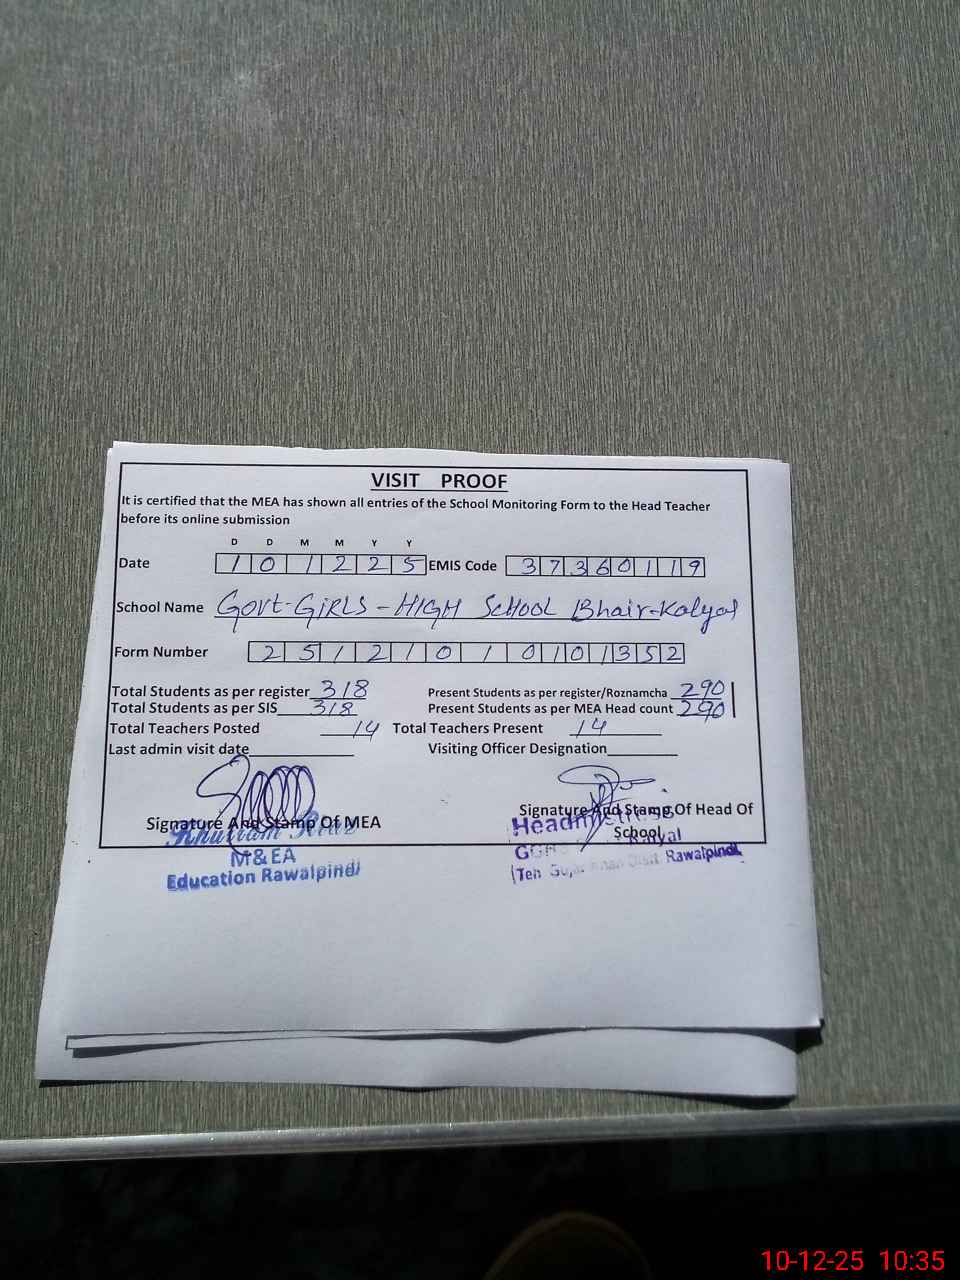 VISIT PROOF
It is certified that the MEA has shown all entries of the School Monitoring Form to the Head Teacher
before its online submission
D D M M Y Y
Date 1 0 1 2 2 5 EMIS Code 3 7 3 6 0 1 1 9
School Name Govt-GIRLS-HIGH SCHOOL Bhair-Kalyal
Form Number 2 5 1 2 1 0 1 0 1 0 1 3 5 2
Total Students as per register 318 Present Students as per register/Roznamcha 290
Total Students as per SIS 318 Present Students as per MEA Head count 290
Total Teachers Posted 14 Total Teachers Present 14
Last admin visit date Visiting Officer Designation
Signature And Stamp Of MEA Signature And Stamp Of Head Of
School
Khurram Riaz
M&EA
Education Rawalpindi
Headmistress
Kalyal
Teh Gujar Khan Distt Rawalpindi
10-12-25 10:35